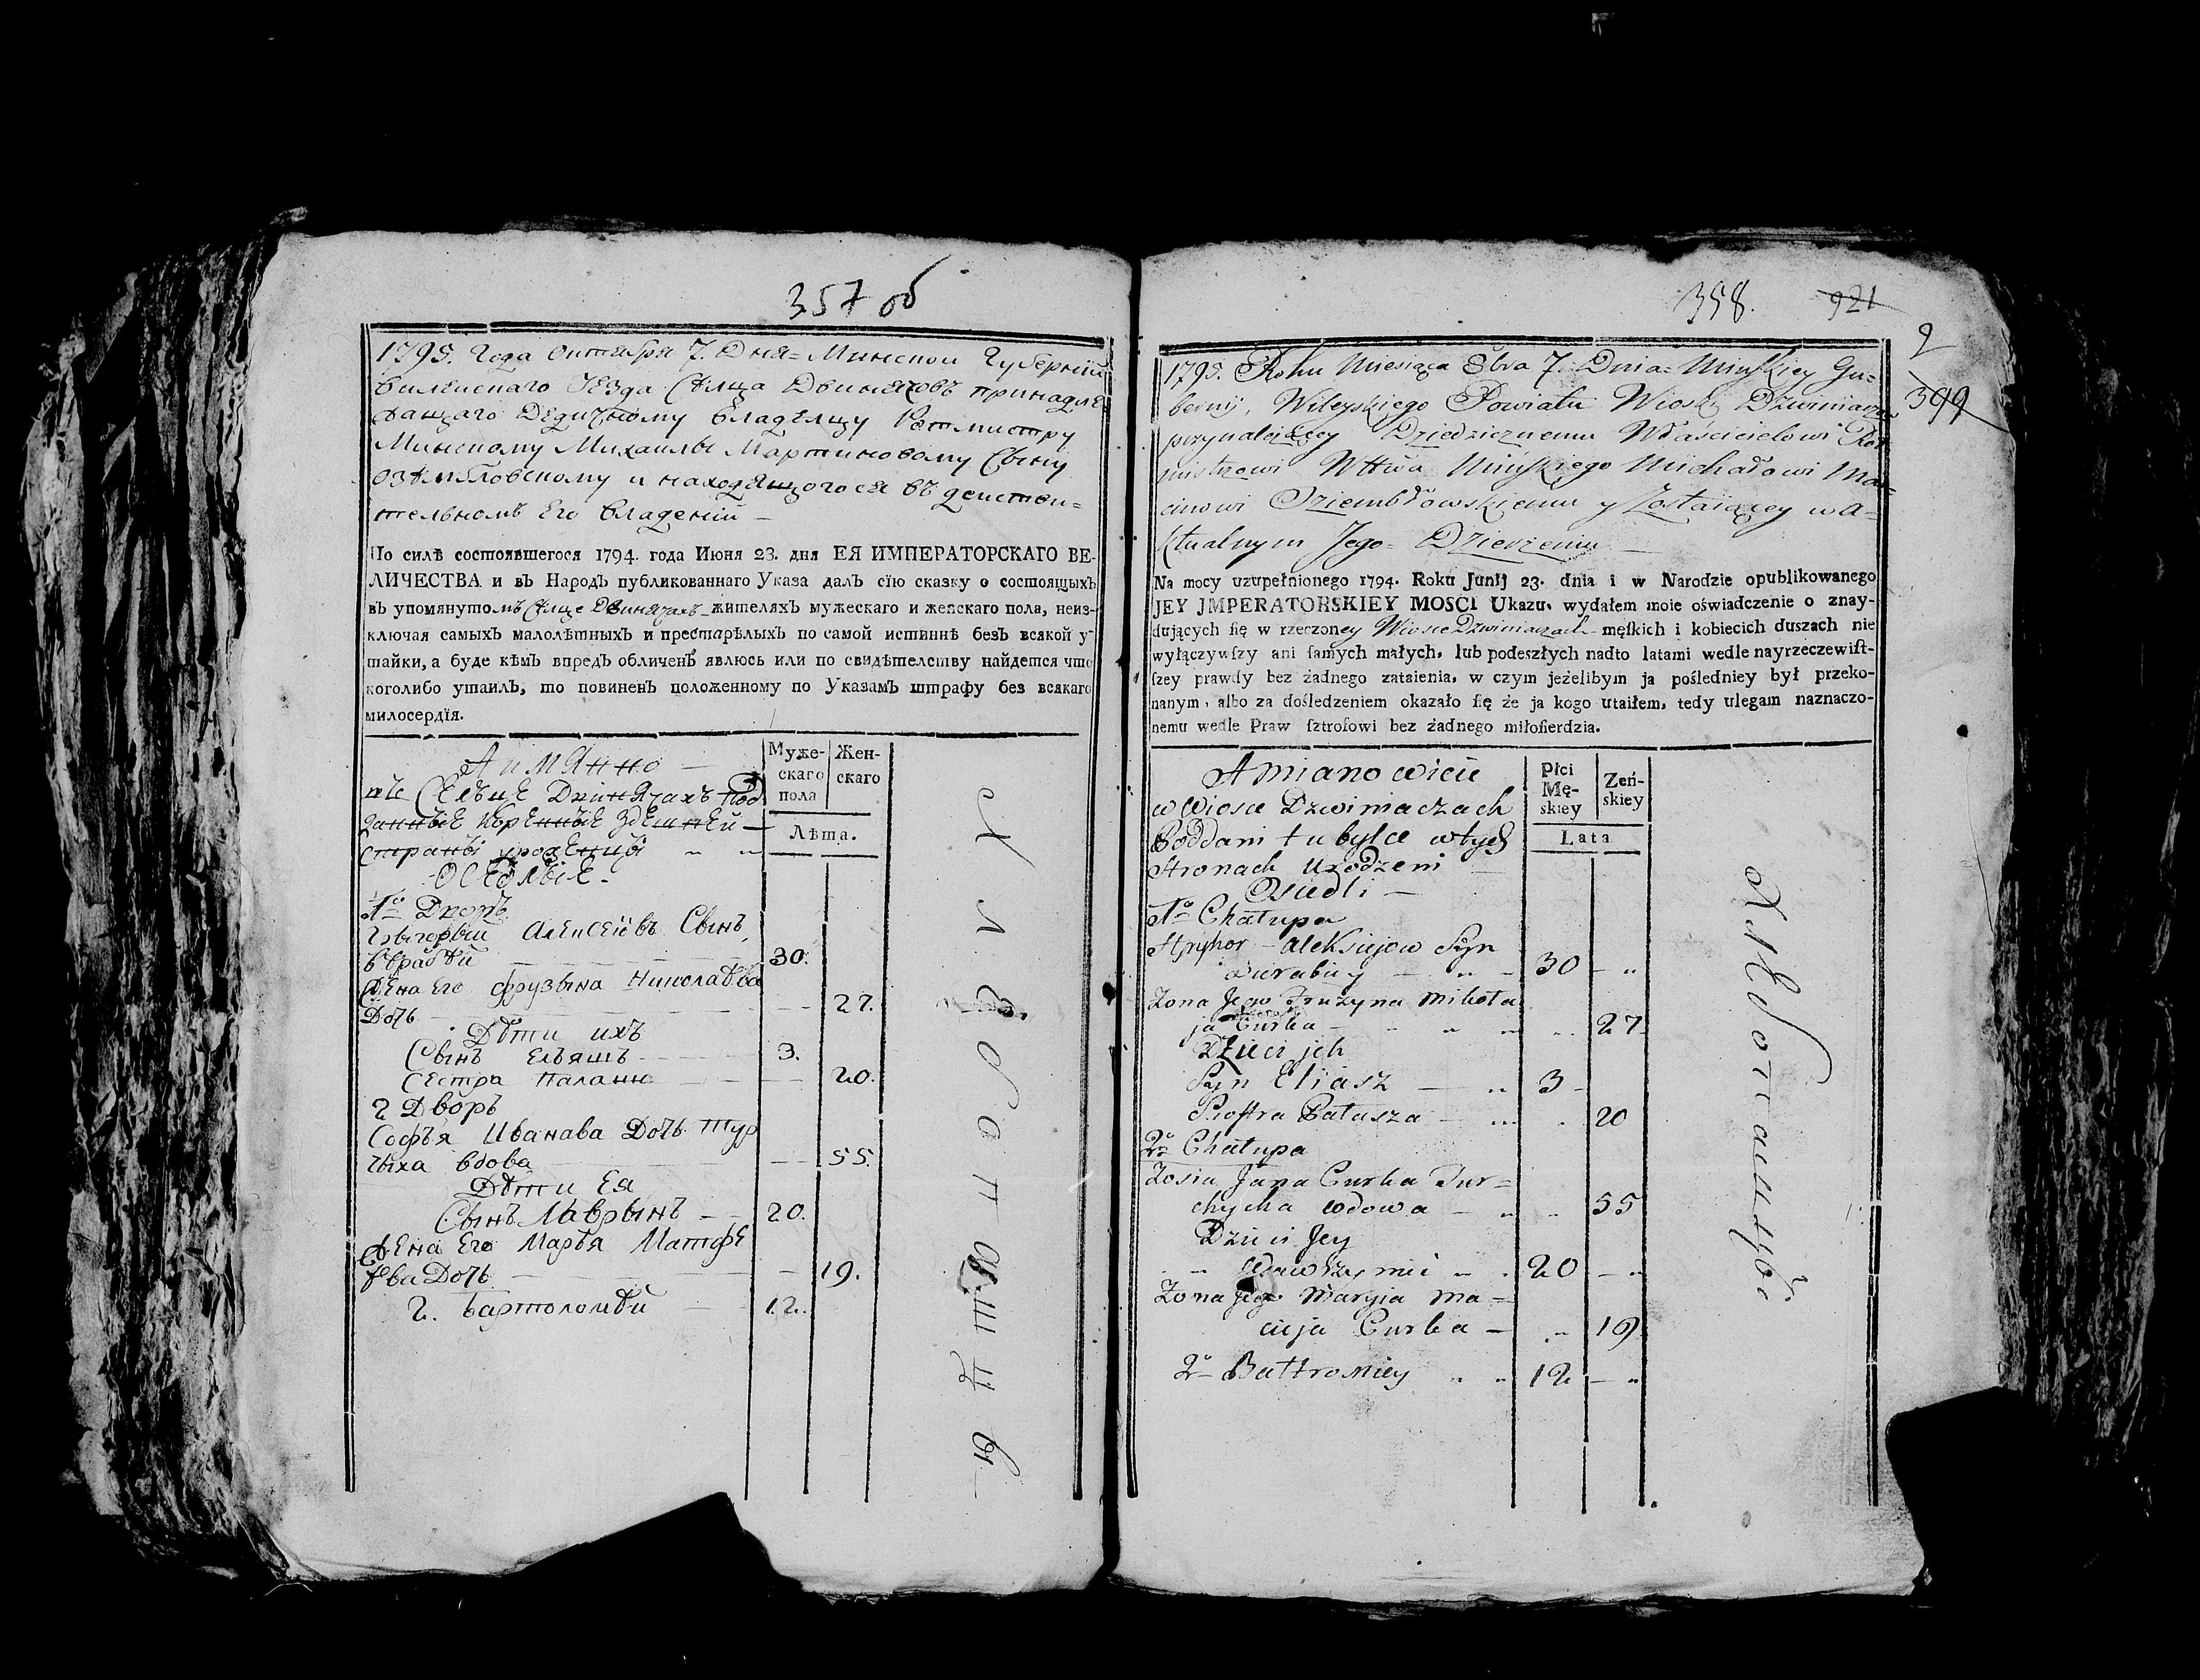 357 об
1795. Года Октября 7. Дня = Минской Губерніи
Виленскаго Уезда Селца Двинячовъ принадле
жащаго Дедичному владелцу Ротмистру
Минскому Михаилы Мартиновому Сыну
и находящогося въ действи=
тельномъ Его владеніи —
По силѣ состоявшегося 1794. года Іюня 23. дня ЕЯ ИМПЕРАТОРСКАГО ВЕ-
ЛИЧЕСТВА и въ Народъ публикованнаго Указа далъ сїю сказку о состоящыхъ
въ упомянутомъ Селце Двинячахъ жителяхъ мужескаго и женскаго пола, неиз-
ключая самыхъ малолѣтныхъ и престарѣлыхъ по самой истиннѣ безъ всякой у-
тайки, а буде кѣмъ впредъ обличенъ явлюсь или по свидѣтелству найдется что
коголибо утаилъ, то повиненъ положенному по Указамъ штрафу без всякаго
милосердїя.
Муже-
скаго
пола
Жен-
скаго
Лѣта.
А имянно —
Селце Двинячахъ Под
данные коренные здешней —
страны
Оседлые —
1º Дворъ
Григорей Алексеевъ Сынъ
30.
Жена Его Фрузына Николаева
Дочь 27.
Дѣти ихъ
Сынъ Ельяшъ 3.
Сестра 20.
2 Дворъ
Софья Иванава Дочь Тур
чыха вдова 55.
Дѣти Ея
Сынъ Лаврынъ 20.
Жена Его Марья Матфе
ева Дочь 19.
2. Бартоломѣй 12.
358.
921
2
399
1795. Roku Miesiąca 8bra 7. Dnia = Minskiey Gu=
bernij, Wileyskiego Powiatu Wioski Dzwiniacza
przynależącey Dziedzicznemu Właścicielowi Rot
mistrzowi Wttwa Minskiego Michałowi Mar
cinowi Dziembłowskiemu y Zostaiącey w A=
ktualnym Jego = Dzierzeniu —
Na mocy uzupełnionego 1794. Roku Junij 23. dnia i w Narodzie opublikowanego
JEY JMPERATORSKIEY MOSCI Ukazu, wydałem moie oświadczenie o znay-
dujących ſię w rzeczoney Wiosce Dzwiniaczach męſkich i kobiecich duszach nie
wyłączywſzy ani ſamych małych, lub podeszłych nadto latami wedle nayrzeczewiſt-
ſzey prawdy bez żadnego zataienia, w czym jeżelibym ja poślednieY był przeko-
nanym, albo za dośledzeniem okazało ſię że ja kogo utaiłem, tedy ulegam naznaczo-
nemu wedle Praw ſztrofowi bez żadnego miłoſierdzia.
Płci
Mę-
skiey
Zeń-
skiey
Lata
A mianowicie
w Wiosce Dzwiniaczach
Poddani tubylce w tych
Stronach Urodzeni
Osiedli —
1º Chałupa
Hryhor Aleksiejow Syn
30
Zona Jego Fruzyna Mikoła
ja Curka 27.
Dzieci jch
Syn Eliasz 3
Siostra Pałusza 20
2º Chałupa
Zosia Jana Curka Tur=
chycha wdowa 55
Dzieci Jey
Wawrzyniec 20
Zona Jego Maryia Ma=
cieja Curka — 19.
2º Bałtromiey 12